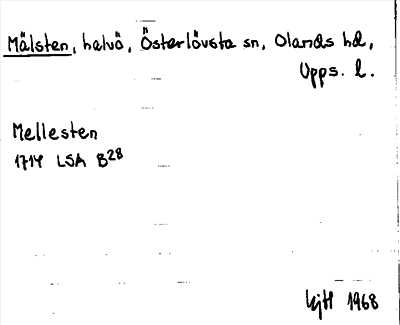 Mälsten, halvö, Österlövsta sn, Olands hd,
Upps. l.
Mellesten
1714 LSA B28
kjH 1968